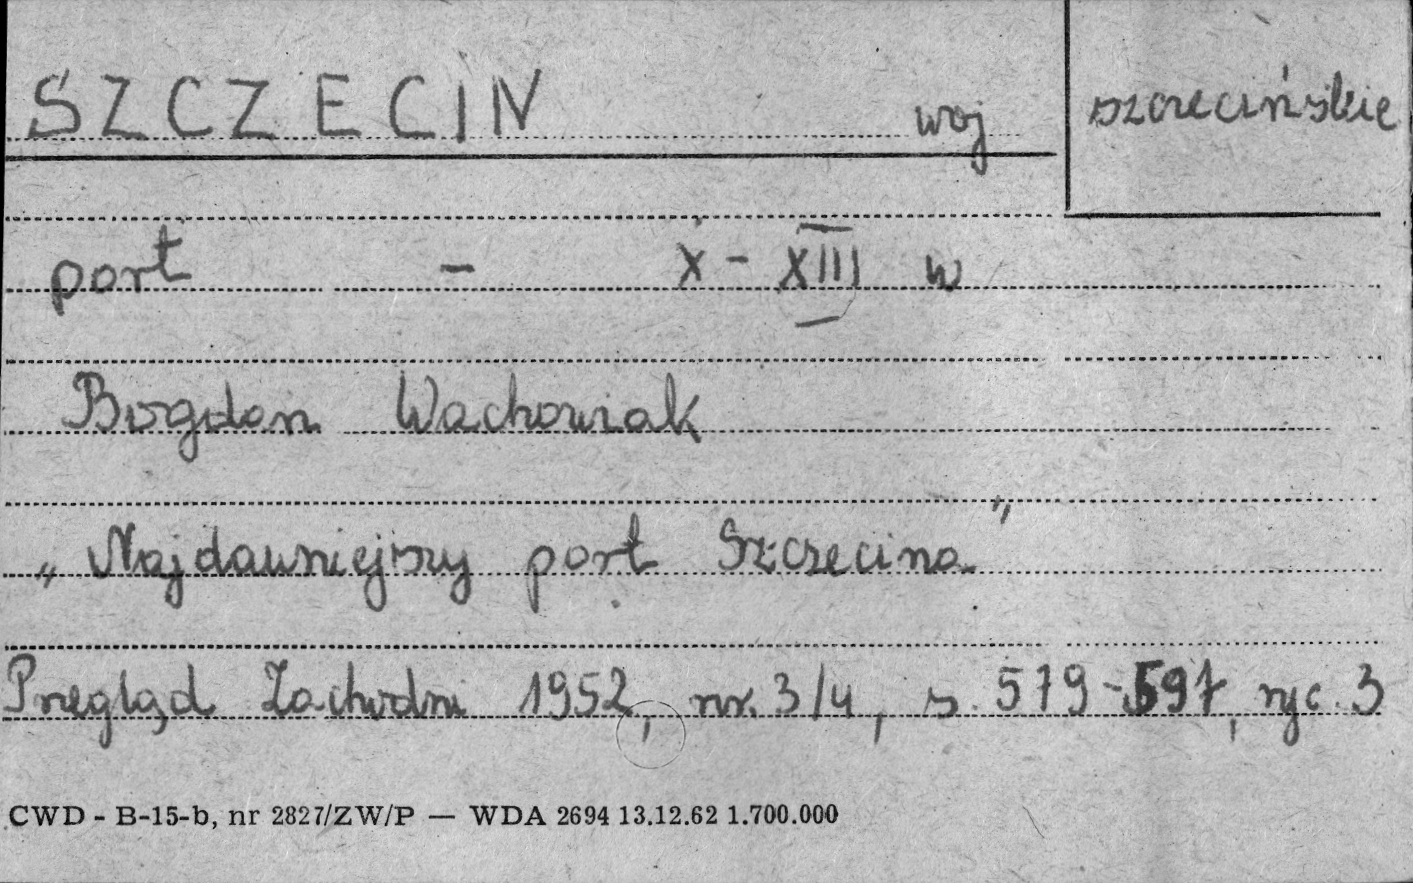 SZCZECIN woj szczecińskie
port - X - XIII w
Bogdan Wachowiak
„Najdawniejszy port Szczecina"
Przegląd Zachodni 1952, nr. 3/4, s. 579-597, ryc. 3
CWD - B-15-b, nr 2827/ZW/P — WDA 2694 13.12.62 1.700.000